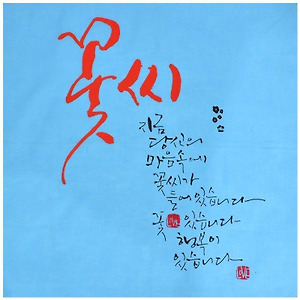 꽃씨
지금
당신의
마음속에
꽃씨가
들어있습니다
꽃 LOVE 있습니다
행복이
있습니다
LOVE